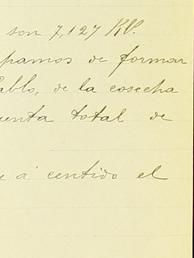 son 7,127 Kl.
pamos de formar
ablo, de la cosecha
uenta total de
e á centido el